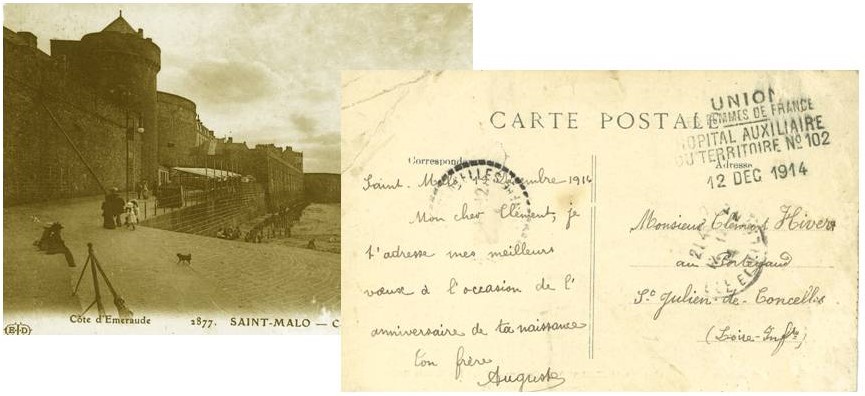 Côte d'Emeraude
2877. SAINT-MALO — C
ELD
CARTE POSTALE
UNION
FEMMES DE FRANCE
HOPITAL AUXILIAIRE
DU TERRITOIRE No 102
12 DEC 1914
Correspond
Adresse
Saint-Malo 1914
Mon cher Clément, je
t'adresse mes meilleurs
vœux à l'occasion de l'
anniversaire de ta naissance
Ton frère
Auguste
Monsieur Clément Hivert
au
St Julien-de-Concelles
(Loire-Infre)